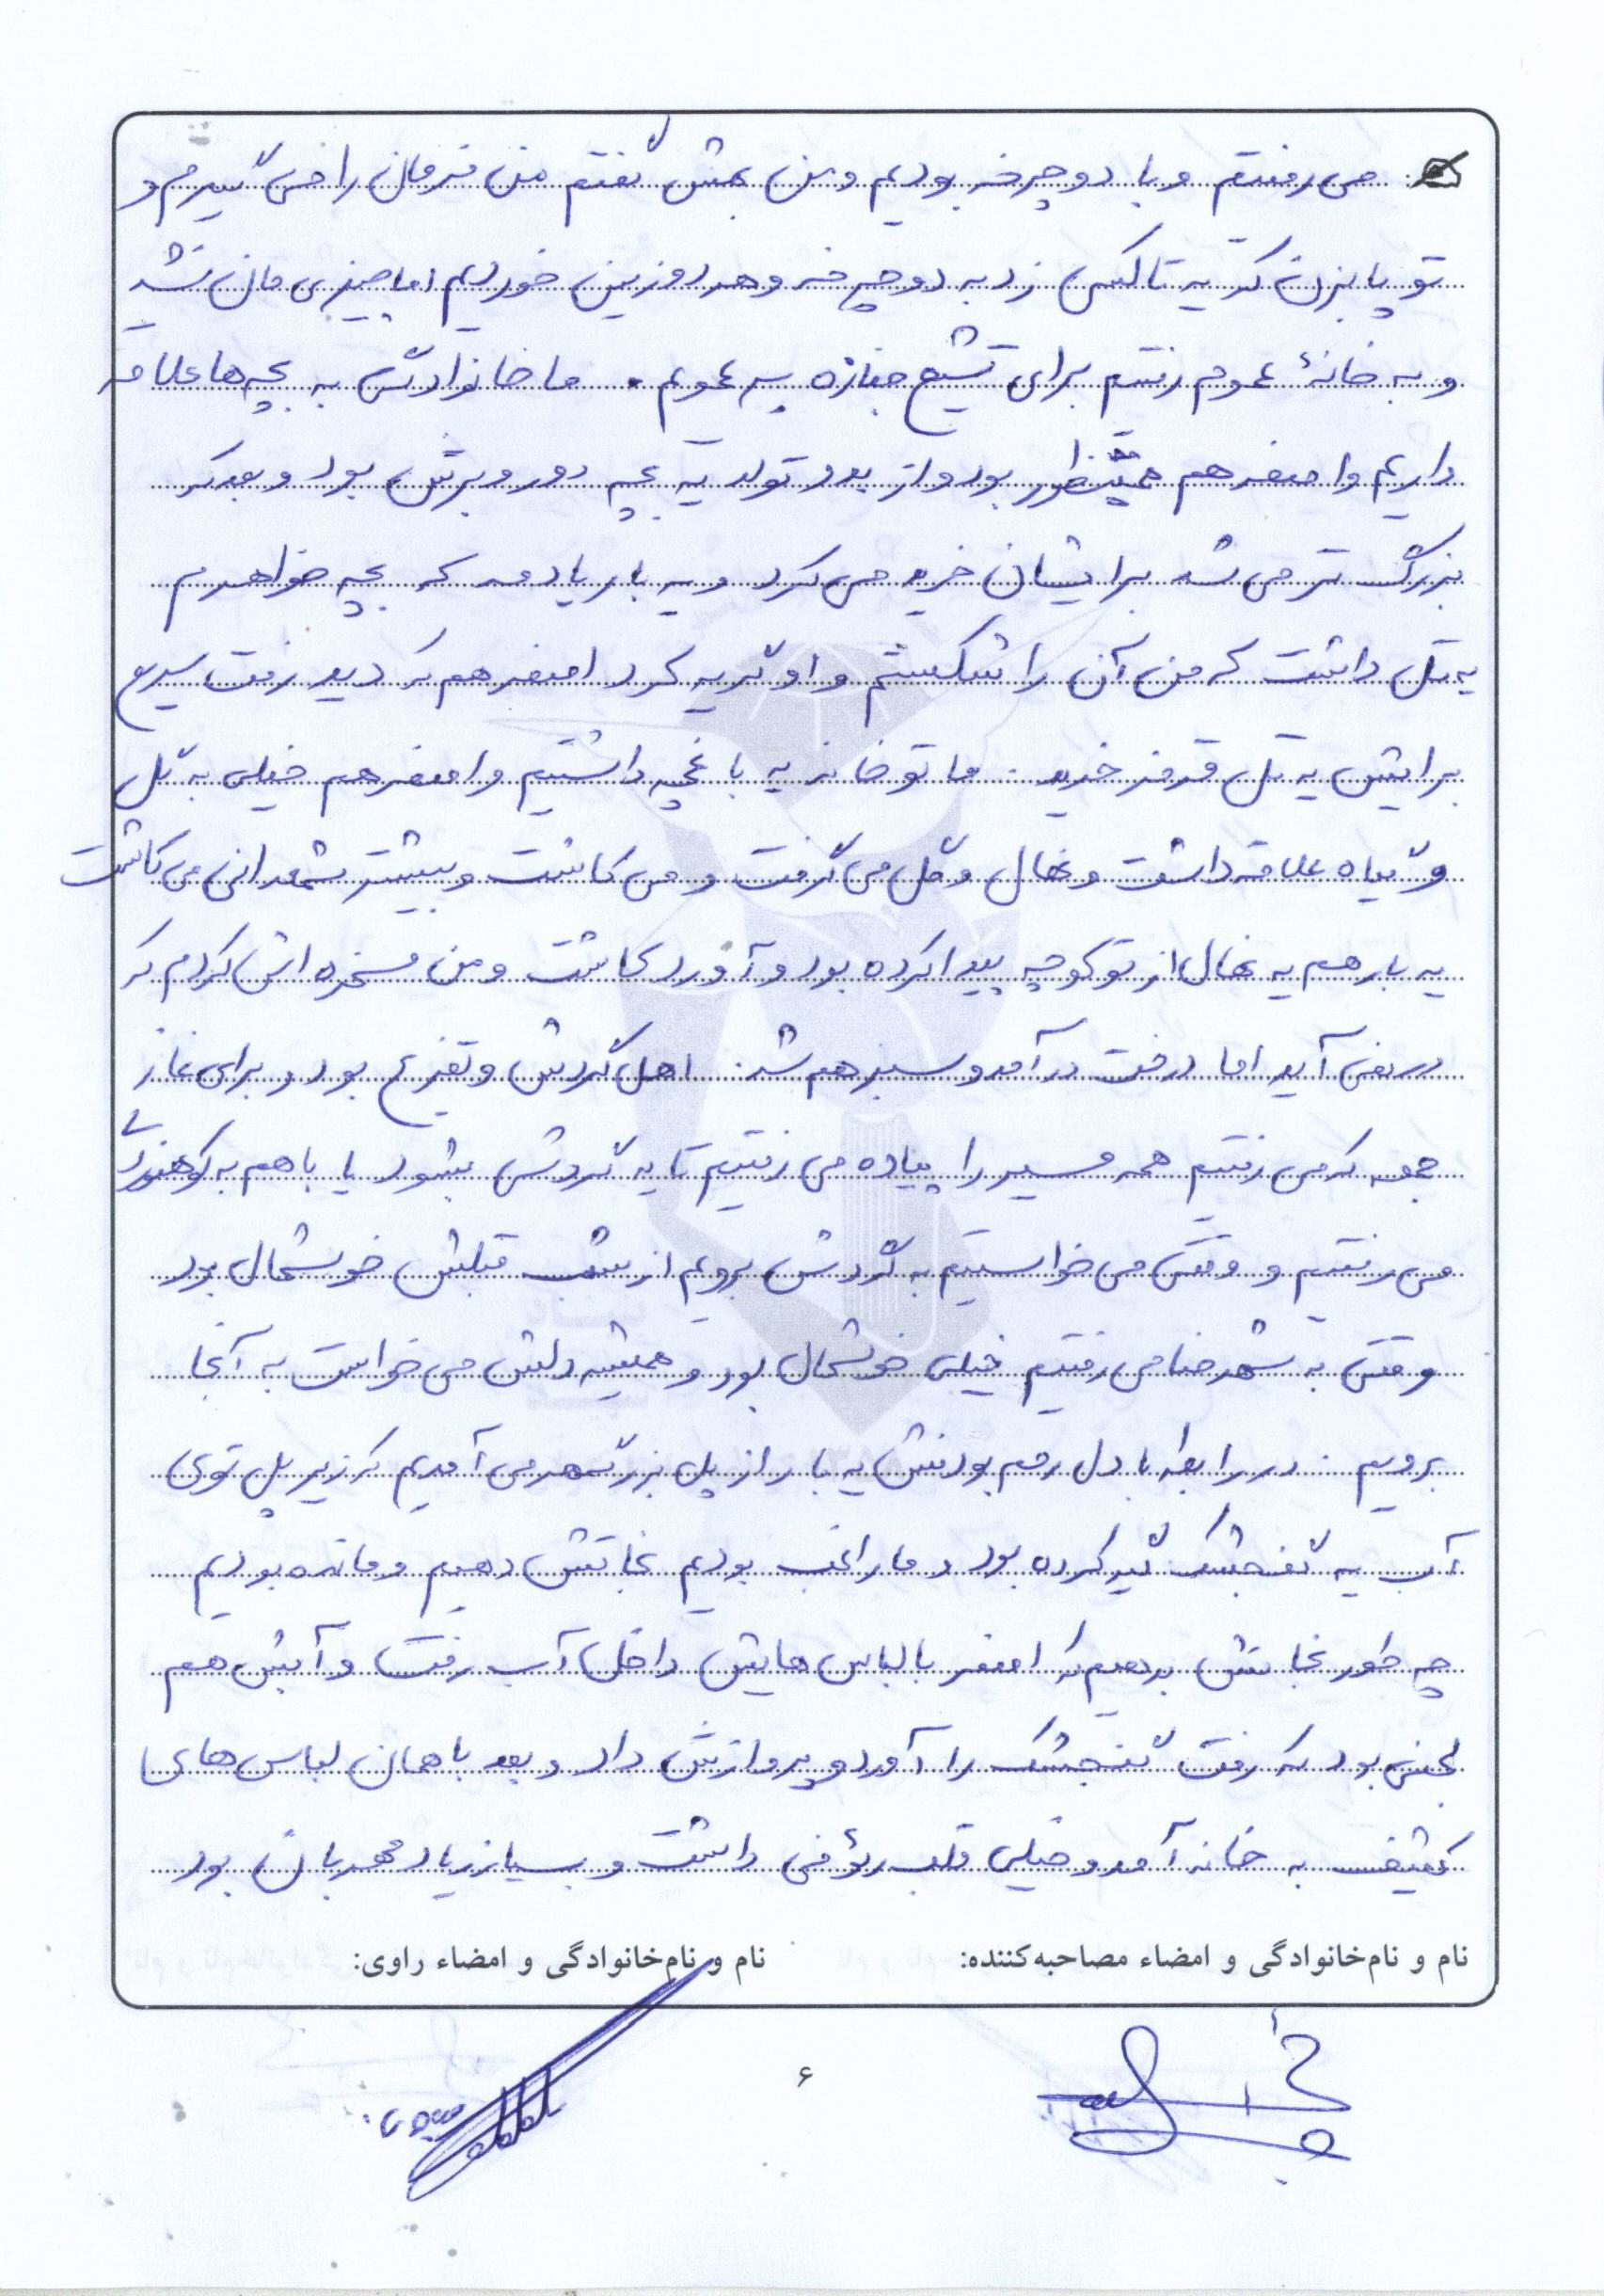 می رفتیم و با دوچرخه بودیم و من بهش گفتم من فرمان را می گیرم و
تو پا بزن که یه تاکسی زد به دوچرخه و هر دو زمین خوردیم اما چیزی مان نشد
و به خانهٔ عموم رفتیم برای تشییع جنازه پسر عمویم. ما خانوادگی به بچه ها علاقه
داریم و اصغر هم همینطور بود و از بدو تولد یه بچه دور و برش بود و بعد که
بزرگ تر می شد برایشان خرید می کرد و یه بار یادمه که بچه خواهرم
یه گل داشت که من آن را شکستم و او گریه کرد اصغر هم که دید رفت سریع
برایش یه گل قرمز خرید. ما تو خانه یه باغچه داشتیم و اصغر هم خیلی به گل
و گیاه علاقه داشت و نهال و گل می گرفت و می کاشت و بیشتر شمعدانی می کاشت
یه بار هم یه نهال از تو کوچه پیدا کرده بود و آورد کاشت و من مسخره اش کردم که
در نمی آید اما درخت در آمد و سبز هم شد. اهل گردش و تفریح بود و برای نماز
جمعه که می رفتیم همه مسیر را پیاده می رفتیم تا یه گردش بشود یا با هم به کوهنوردی
می رفتیم و وقتی می خواستیم به گردش برویم از شب قبلش خوشحال بود
وقتی به شهرضا می رفتیم خیلی خوشحال بود و همیشه دلش می خواست به آنجا
برویم. در رابطه با دل رحم بودنش یه بار از پل بزرگمهر می آمدیم که زیر پل توی
آب یه گنجشک گیر کرده بود و ما راغب بودیم نجاتش دهیم و مانده بودیم
چه طور نجاتش بدهیم که اصغر با لباس هایش داخل آب رفت و آبش هم
لجنی بود که رفت گنجشک را آورد و پروازش داد و بعد با همان لباس های
کثیف به خانه آمد و خیلی قلب رئوفی داشت و بسیار زیاد مهربان بود
نام و نام‌خانوادگی و امضاء مصاحبه‌کننده:
نام و نام‌خانوادگی و امضاء راوی:
۶